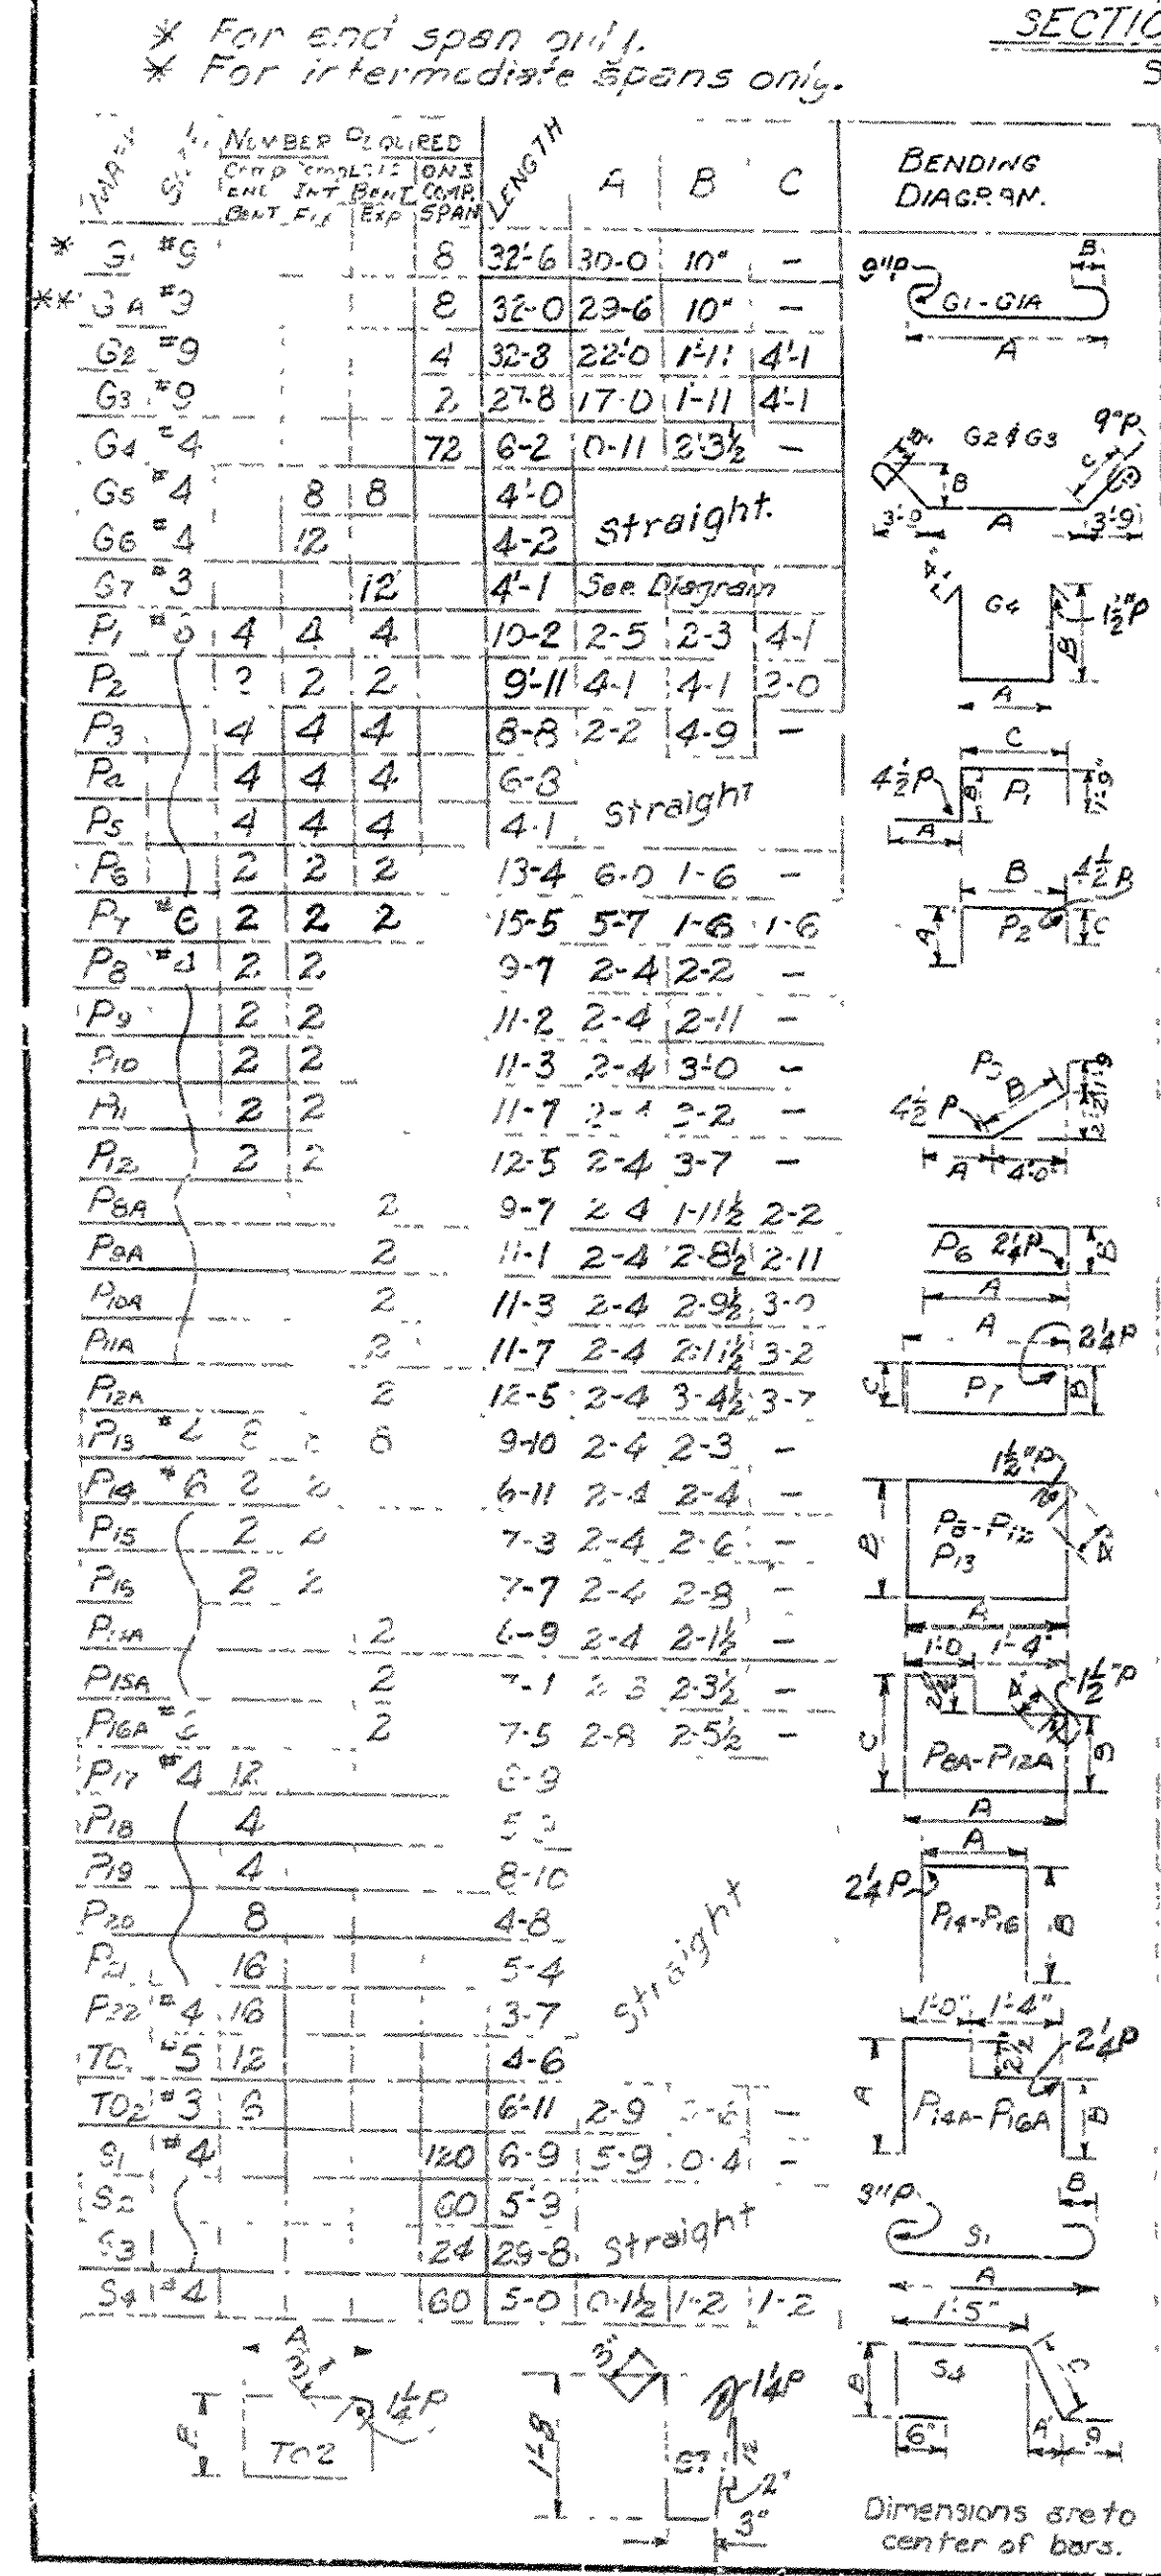 * For end span only.
* For intermediate spans only.
SECTIO
S
NUMBER REQUIRED
LENGTH A B C
BENDING
DIAGRAM.
BENT Fix Exp SPAN
* G1 #9 8 32'-6 30-0 10" -
** G1A #9 8 32-0 29-6 10" -
G2 #9 4 32-8 22'-0 1'-11 4'-1
G3 #9 2 27-8 17-0 1'-11 4'-1
G4 #4 72 6-2 0-11 2'3½ -
G5 #4 8 8 4'-0 Straight.
G6 #4 12 4-2
G7 #3 12 4'-1 See Diagram
P1 4 4 4 10-2 2-5 2-3 4-1
P2 2 2 9'-11 4-1 4-1
P3 4 4 4 8-8 2-2 4-9 -
P4 4 4 4 6-8 Straight
P5 4 4 4 4-1
P6 2 2 2 13-4 6-0 1-6 -
P7 #6 2 2 2 15-5 5-7 1-6 1-6
P8 #4 2 2 9-7 2-4 2-2 -
P9 2 2 11-2 2-4 2-11 -
P10 2 2 11-3 2-4 3'-0 -
P11 2 2 11-7 2-4 3-2 -
P12 2 2 12-5 2-4 3-7 -
P8A 2 9-7 2-4 1-11½ 2-2
P9A 2 11-1 2-4 2-8½ 2-11
P10A 2 11-3 2-4 2-9½ 3-0
P11A 2 11-7 2-4 2-11½ 3-2
P12A 2 12-5 2-4 3-4½ 3-7
P13 #4 8 9-10 2-4 2-3 -
P14 #6 2 2 6-11 2-4 2-4 -
P15 2 2 7-3 2-4 2-6 -
P16 2 2 7-7 2-4 2-8 -
P14A 2 6-9 2-4 2-1½ -
P15A 2 7-1 2-3½ -
P16A 2 7-5 2-8 2-5½ -
P17 #4 12
P18 4
P19 4 8-10
P20 8 4-8 Straight
P21 16 5-4
P22 #4 16 3-7
#5 12 4-6
TO2 #3 6 6'-11 2-9 -
S1 #4 120 6-9 5-9 0-4 -
S2 60 5'-3 Straight
S3 24 29-8
S4 #4 60 5-0 0-1½ 1-2 1-2
9"P B
G1-G1A
A
G2 & G3 9"P
B C
3'-9 A 3'-9
G4 1½"P
B
A
C
4½P B P1 1'-9"
A
B 4½P
A P2 C
P3 B 1'-9
4½ P 2'-2
A 4'-0
P6 2¼P B
A
A 2¼P
C P7 B
1½"P
B P8-P12
P13
A
1'-0 1'-4"
2½ 1½"P
C P8A-P12A B
A
A
2¼P P14-P16 B
1'-0" 1'-4"
2½ 2¼P
A P14A-P16A B
3"P B
S1
A
1'-5"
B S4 C
6" A
A
3"
1¼P
TO2
3"
1¼P
1'-8
G7
2"
3"
Dimensions are to
center of bars.